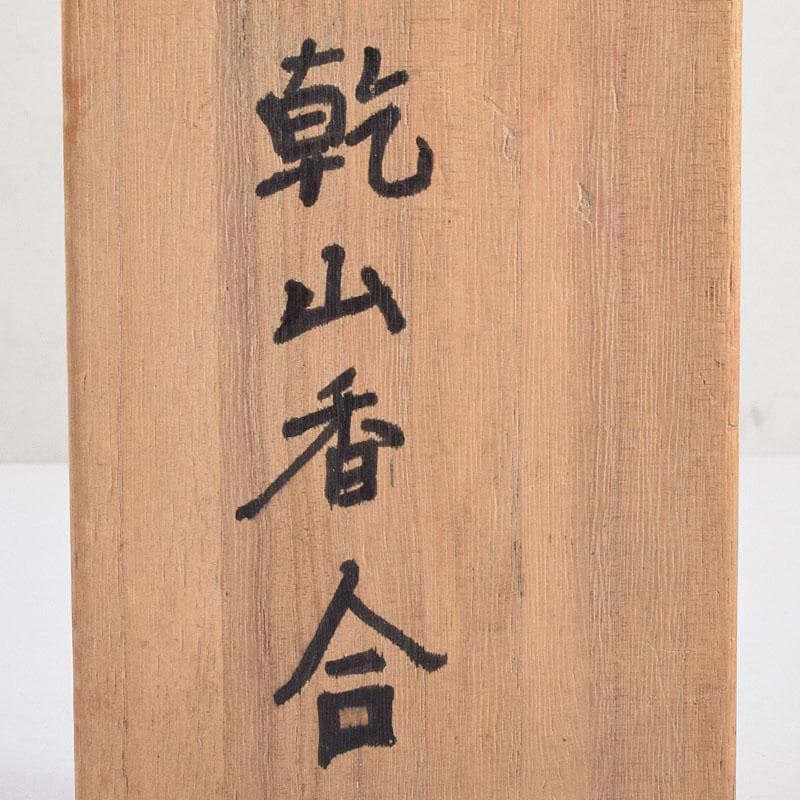 乾山香合